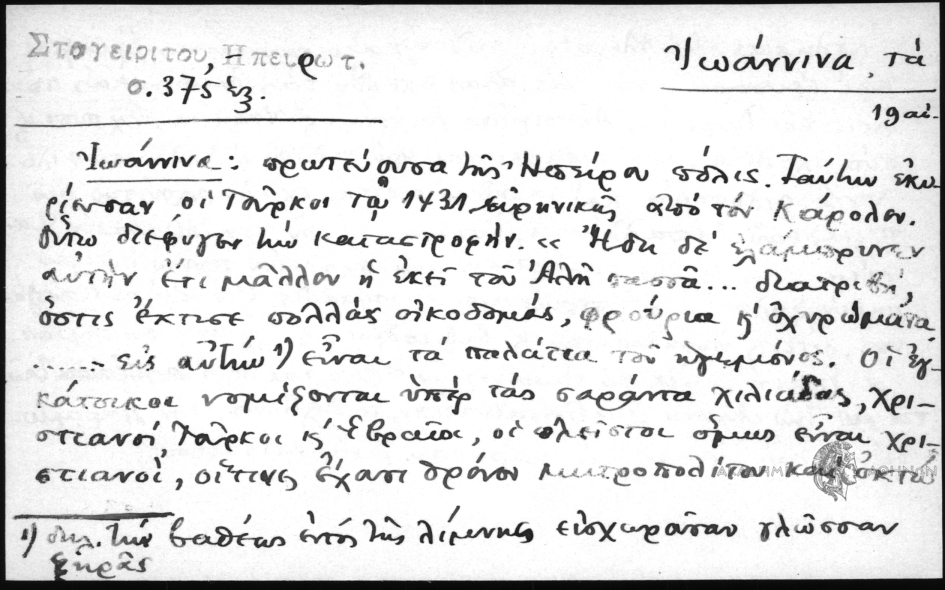 Σταγειρίτου, Ηπειρωτ.
σ. 375 ἑξ.
Ἰωάννινα, τά
19 αἰ.
Ἰωάννινα: πρωτεύουσα τῆς Ἠπείρου πόλις. Ταύτην ἐκυ-
ρίευσαν οἱ Τοῦρκοι τῷ 1431 εἰρηνικῶς ἀπό τόν Κάρολον.
Οὕτω διέφυγεν τήν καταστροφήν. «Ἤδη δέ ἐλάμπρυνεν
αὐτήν ἔτι μᾶλλον ἡ ἐκεῖ τοῦ Ἀλῆ πασσᾶ... διατριβή,
ὅστις ἔκτισε πολλάς οἰκοδομάς, φρούρια κ' ὀχυρώματα
...... εἰς αὐτήν 1) εἶναι τά παλάτια τοῦ ἡγεμόνος. Οἱ ἐγ-
κάτοικοι νομίζονται ὑπέρ τάς σαράντα χιλιάδας, χρι-
στιανοί, Τοῦρκοι κ' Ἑβραῖοι, οἱ πλεῖστοι ὅμως εἶναι χρι-
στιανοί, οἵτινες ἔχουσι θρόνον μητροπολίτου καί ὀκτώ
1) δηλ. τήν βαθέως ἐντός τῆς λίμνης εἰσχωροῦσαν γλῶσσαν
ξηρᾶς